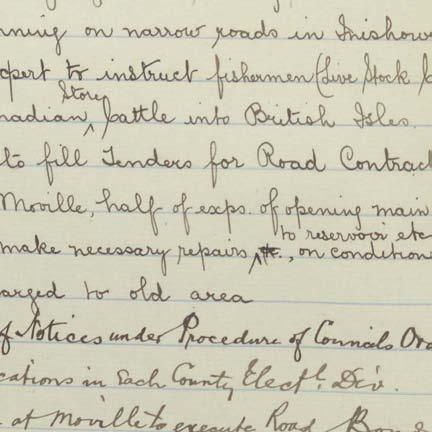 nning on narrow roads in Inishowe
xpert to instruct fishermen (Live Stock
Store
nadian ^ Cattle into British Isles.
to fill Tenders for Road Contract
Moville, half of exps. of opening main
to reservoir etc
make necessary repairs ^ , on condition
arged to old area
of Notices under Procedure of Councils Ord
cations in Each County Elect.l Div.
at Moville to execute Road